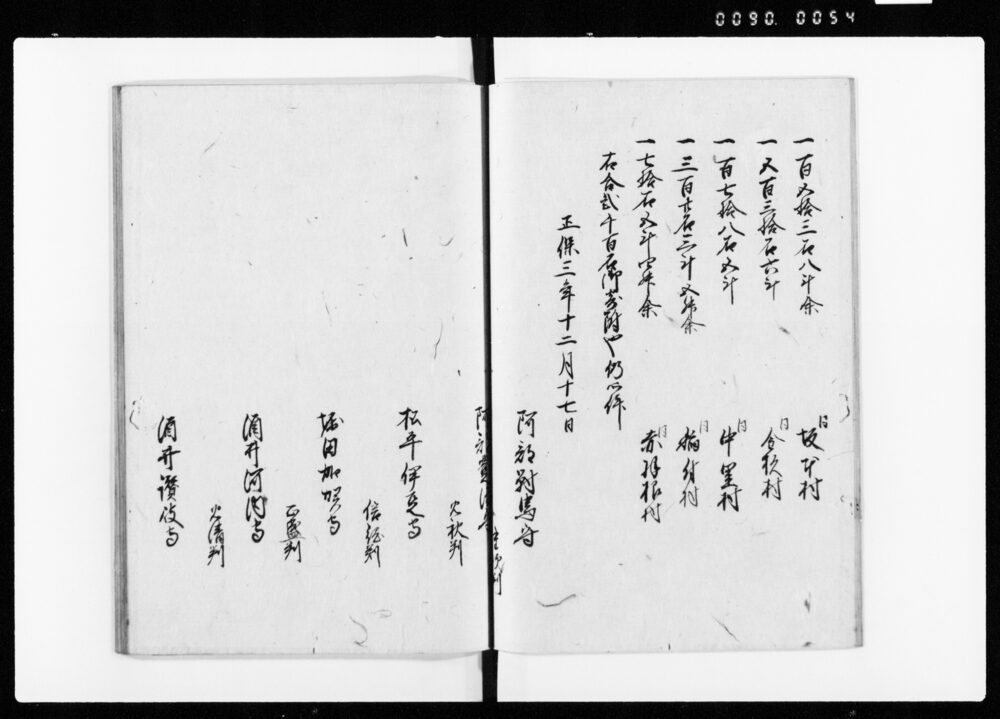 0090. 0054
一百五拾三石八斗余 同 坂本村
一五百三拾石六斗 同 金杉村
一百七拾八石五斗 同 中里村
一三百廿石二斗五升余 同 村
一七拾石五斗四升余 同 赤羽根村
右合弐千百石御寄附也仍如件
正保三年十二月十七日
阿部対馬守
重次判
阿部豊後守
忠秋判
松平伊豆守
信綱判
堀田加賀守
正盛判
酒井河内守
忠清判
酒井讃岐守